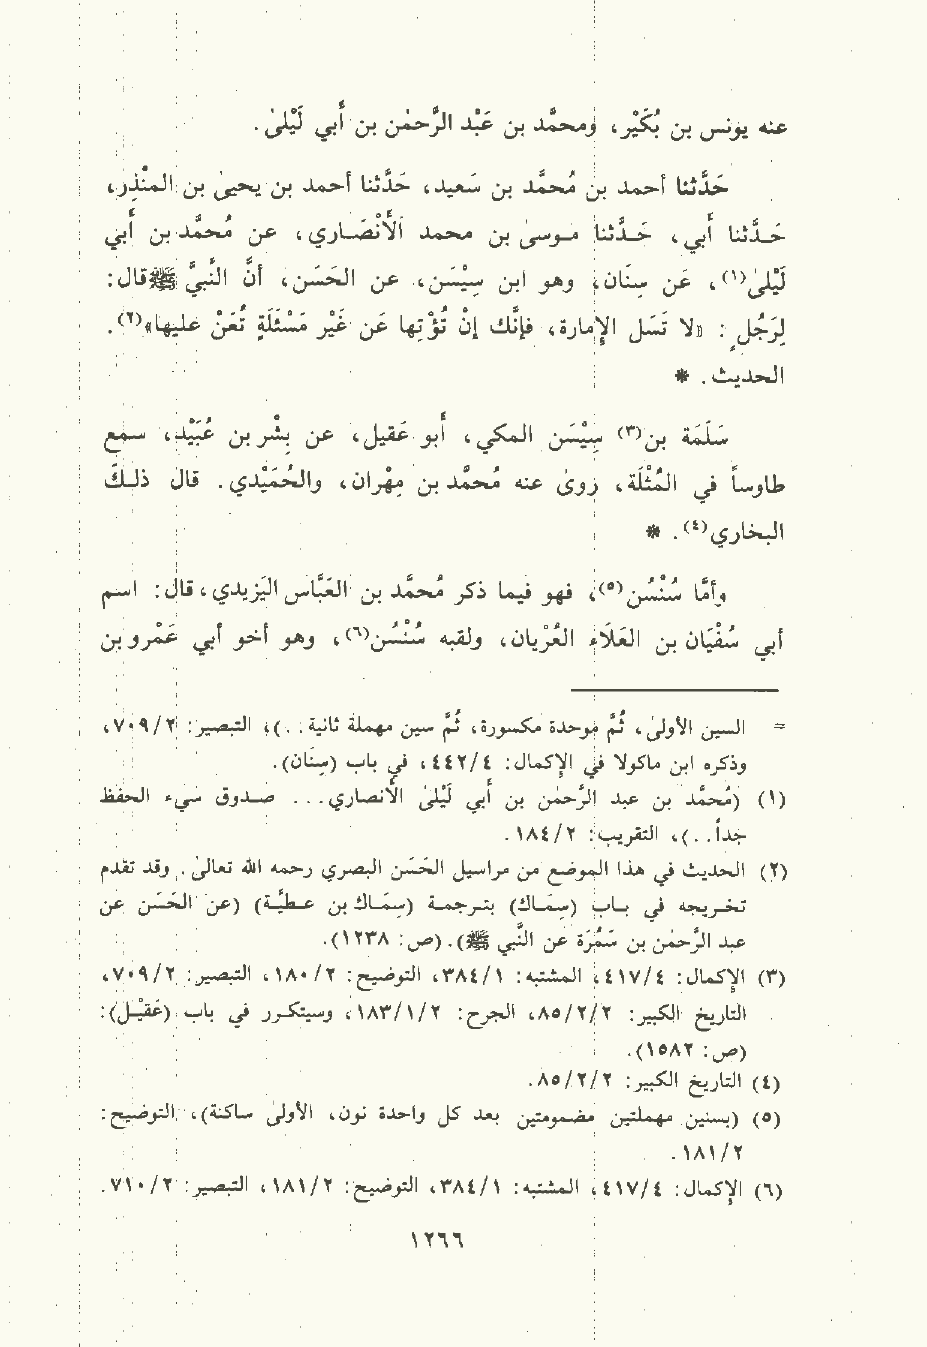 عنه يونس بن بُكَيْر، ومحمَّد بن عَبْد الرَّحمٰن بن أَبي لَيْلىٰ.
حَدَّثنا أحمد بن مُحمَّد بن سَعيد، حَدَّثنا أحمد بن يحيىٰ بن المنْذِر،
حَـدَّثنا أَبي، حَـدَّثنا مـوسىٰ بن محمد الأَنْصَـاري، عن مُحمَّد بن أَبي
لَيْلىٰ(١)، عَن سِنَان، وهو ابن سِيْسَن، عن الحَسَن، أنَّ النَّبيَّ ﷺ قال:
لِرَجُلٍ : «لا تَسَل الإِمارة، فإنَّك إنْ تُؤتِها عَن غَيْر مَسْئَلَةٍ تُعَنْ عليها»(٢).
الحديث. *
سَلَمَة بن(٣) سِيْسَن المكي، أَبو عَقيل، عن بِشْر بن عُبَيْد، سمع
طاوساً في المُثْلَة، روىٰ عنه مُحمَّد بن مِهْران، والحُمَيْدي. قال ذلـكَ
البخاري(٤). *
وأمَّا سُنْسُن(٥)، فهو فيما ذكر مُحمَّد بن العَبَّاس اليَزيدي، قال: اسم
أبي سُفْيَان بن العَلَاء العُرْيان، ولقبه سُنْسُن(٦)، وهو أخو أبي عَمْرو بن
= السين الأولىٰ، ثُمَّ موحدة مكسورة، ثُمَّ سين مهملة ثانية. .)، التبصير: ٧٠٩/٢،
وذكره ابن ماكولا في الإكمال: ٤٤٢/٤، في باب (سِنَان).
(١) (مُحمَّد بن عبد الرَّحمٰن بن أَبي لَيْلىٰ الأَنصاري. . . صـدوق سَيء الحفظ
جداً. .)، التقريب: ١٨٤/٢.
(٢) الحديث في هذا الموضع من مراسيل الحَسَن البصري رحمه الله تعالىٰ. وقد تقدم
تخـريجه في بـاب (سِمَـاك) بتـرجمـة (سِمَـاك بن عـطيَّـة) (عن الحَسَن عن
عبد الرَّحمٰن بن سَمُرَة عن النَّبي ﷺ). (ص: ١٢٣٨).
(٣) الإكمال: ٤١٧/٤، المشتبه: ٣٨٤/١، التوضيح: ١٨٠/٢، التبصير: ٧٠٩/٢،
التاريخ الكبير: ٨٥/٢/٢، الجرح: ١٨٣/١/٢، وسيتكـرر في باب (عَقيْـل):
(ص: ١٥٨٢).
(٤) التاريخ الكبير: ٨٥/٢/٢.
(٥) (بسنين مهملتين مضمومتين بعد كل واحدة نون، الأولىٰ ساكنة)، التوضيح:
١٨١/٢.
(٦) الإكمال: ٤١٧/٤، المشتبه: ٣٨٤/١، التوضيح: ١٨١/٢، التبصير: ٧١٠/٢.
١٢٦٦